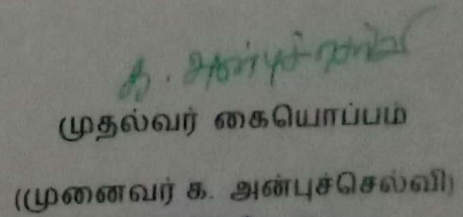 க. அன்புச்செல்வி
முதல்வர் கையொப்பம்
(முனைவர் க. அன்புச்செல்வி)